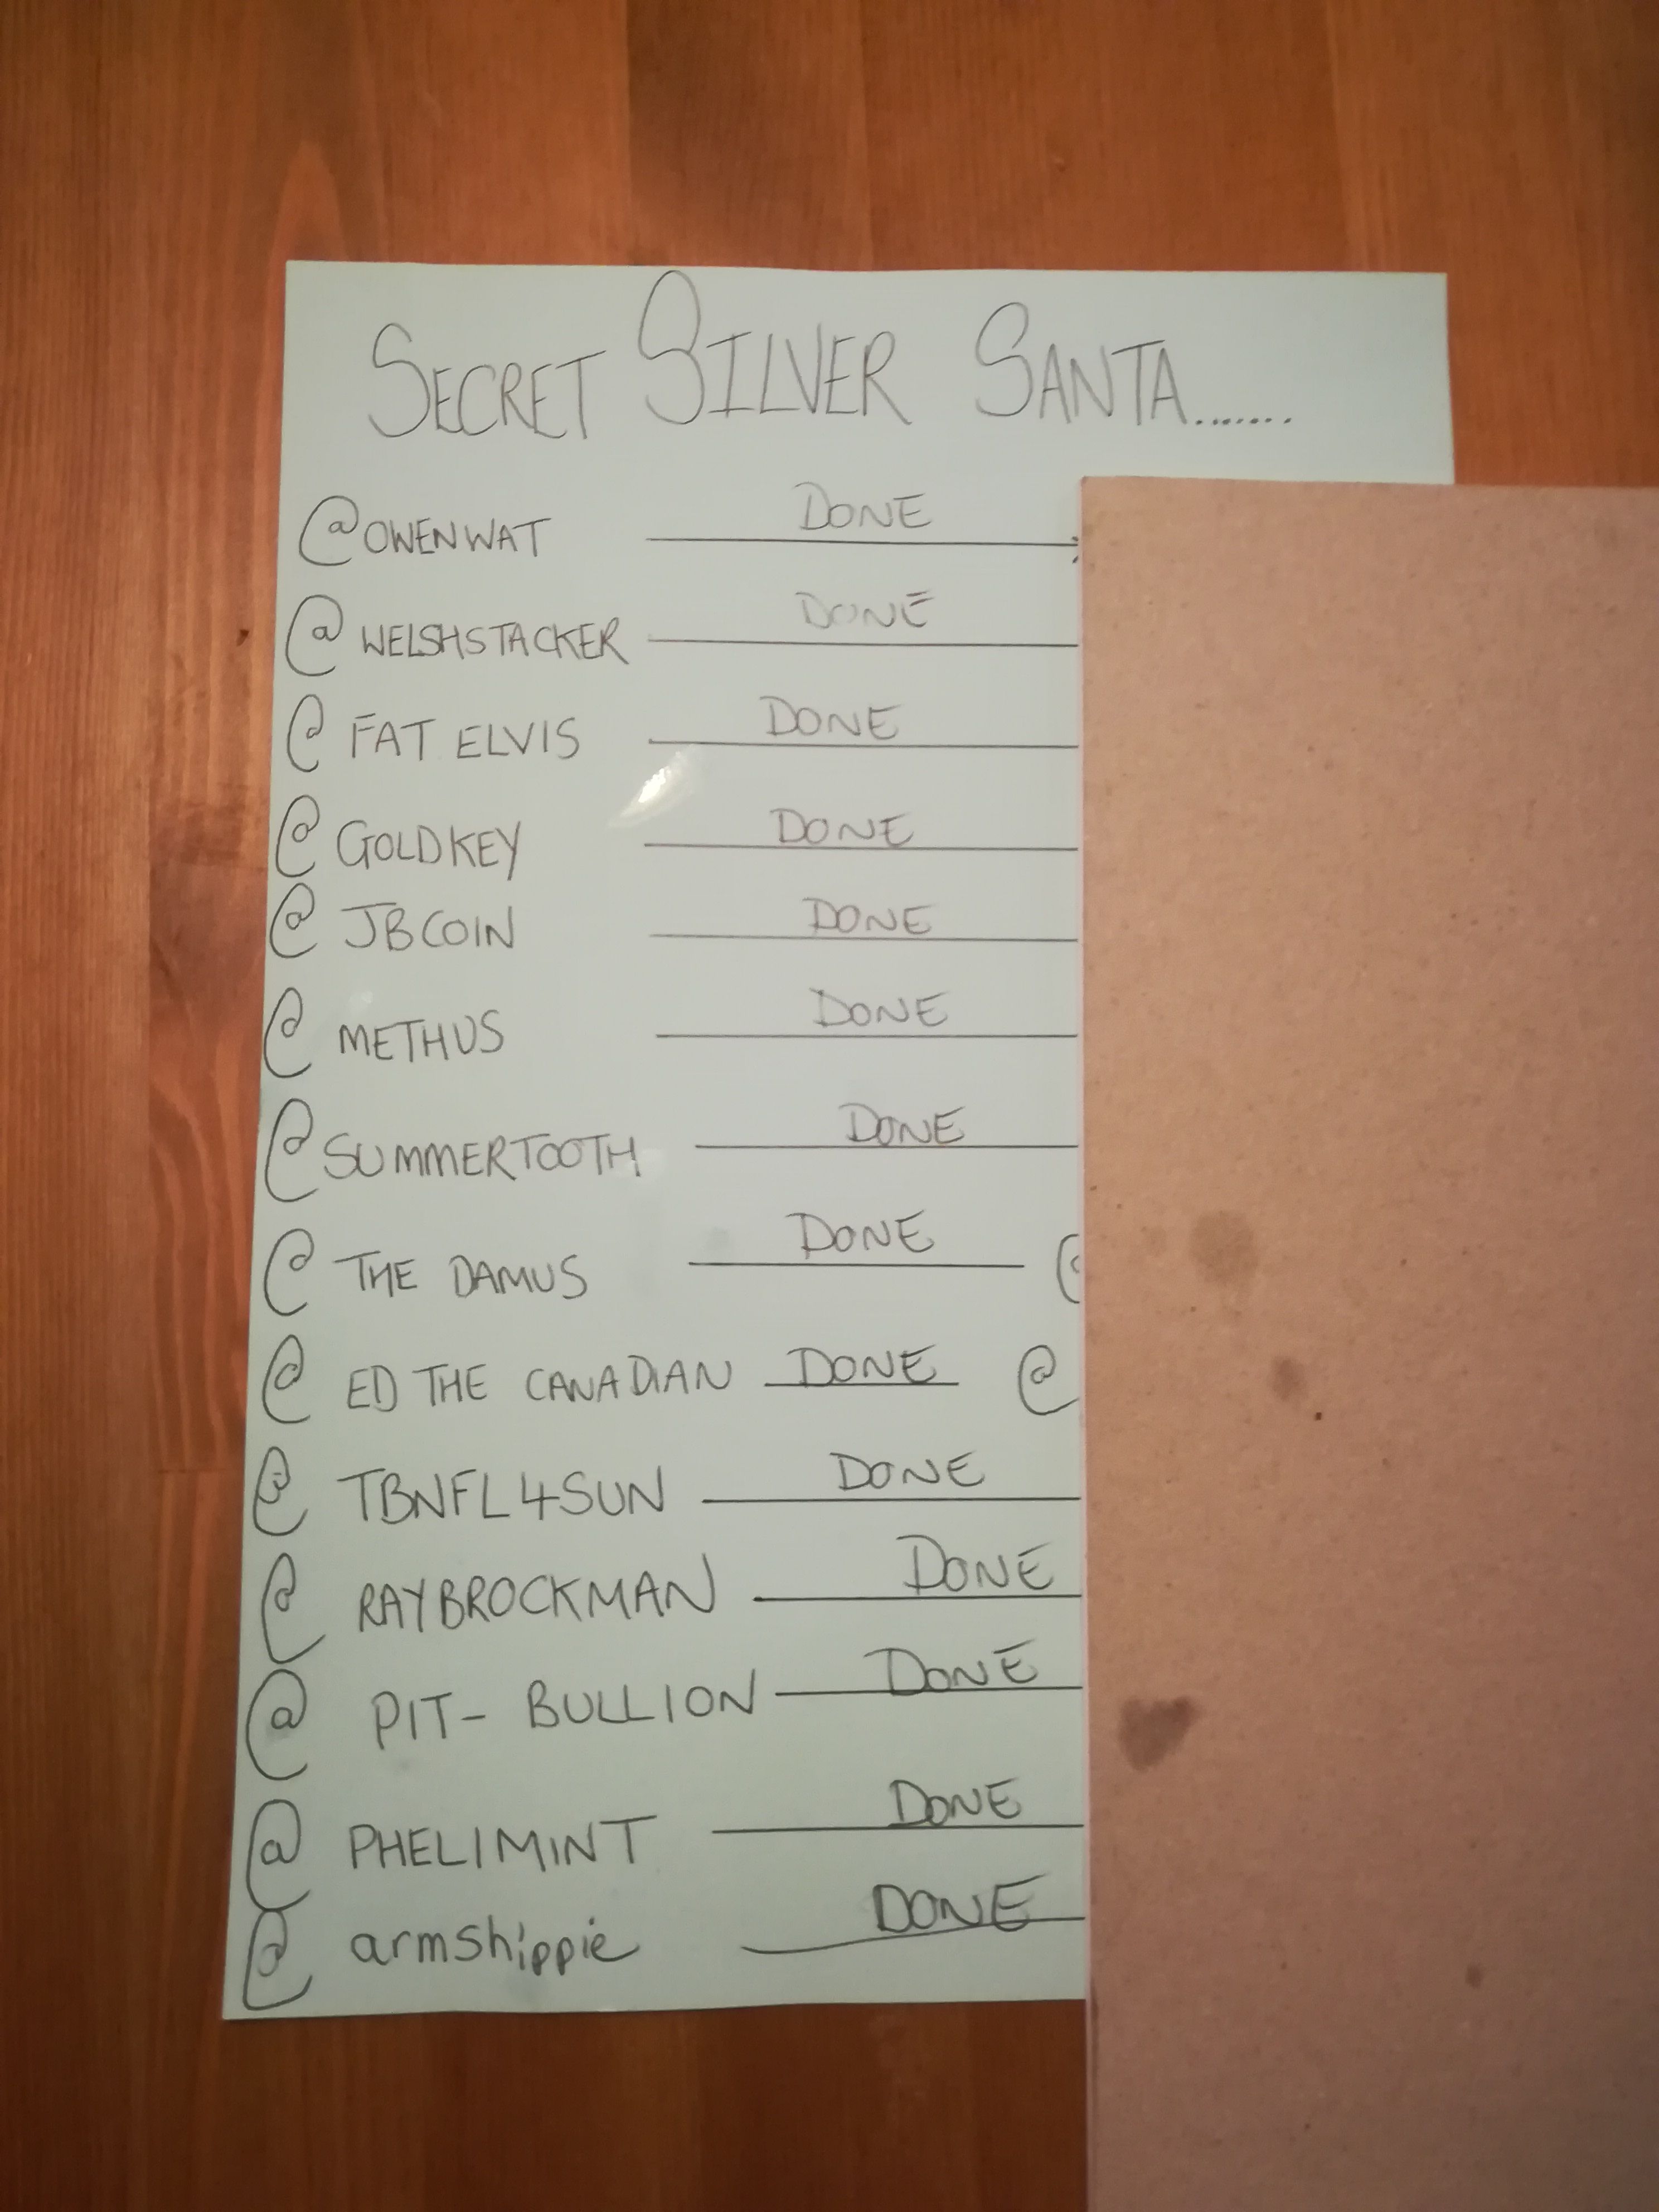 SECRET SILVER SANTA........
@OWENWAT DONE
@WELSHSTACKER DONE
@ FAT ELVIS DONE
@ GOLDKEY DONE
@ JBCOIN DONE
@ METHUS DONE
@SUMMERTOOTH DONE
@ THE DAMUS DONE
@ ED THE CANADIAN DONE @
@ TBNFL4SUN DONE
@ RAYBROCKMAN DONE
@ PIT-BULLION DONE
@ PHELIMINT DONE
@ armshippie DONE